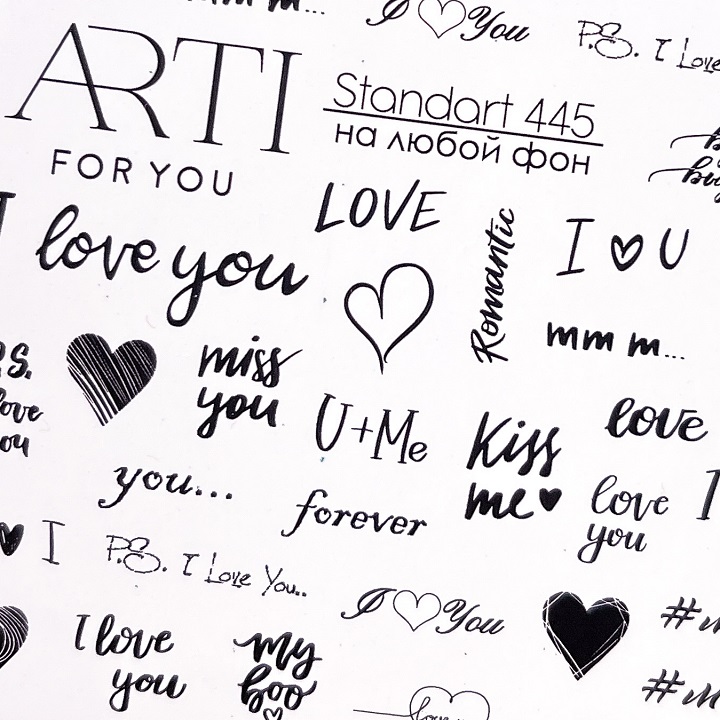 mm m...
I You
P.S. I Love
ARTI
FOR YOU
Standart 445
на любой фон
I love you
LOVE
Romantic
I U
mm m...
P.S.
love
you
miss
you
U+Me
Kiss
me
love
you...
forever
love
you
I
I
P.S. I Love You..
I You
I love
you
my
boo
love you